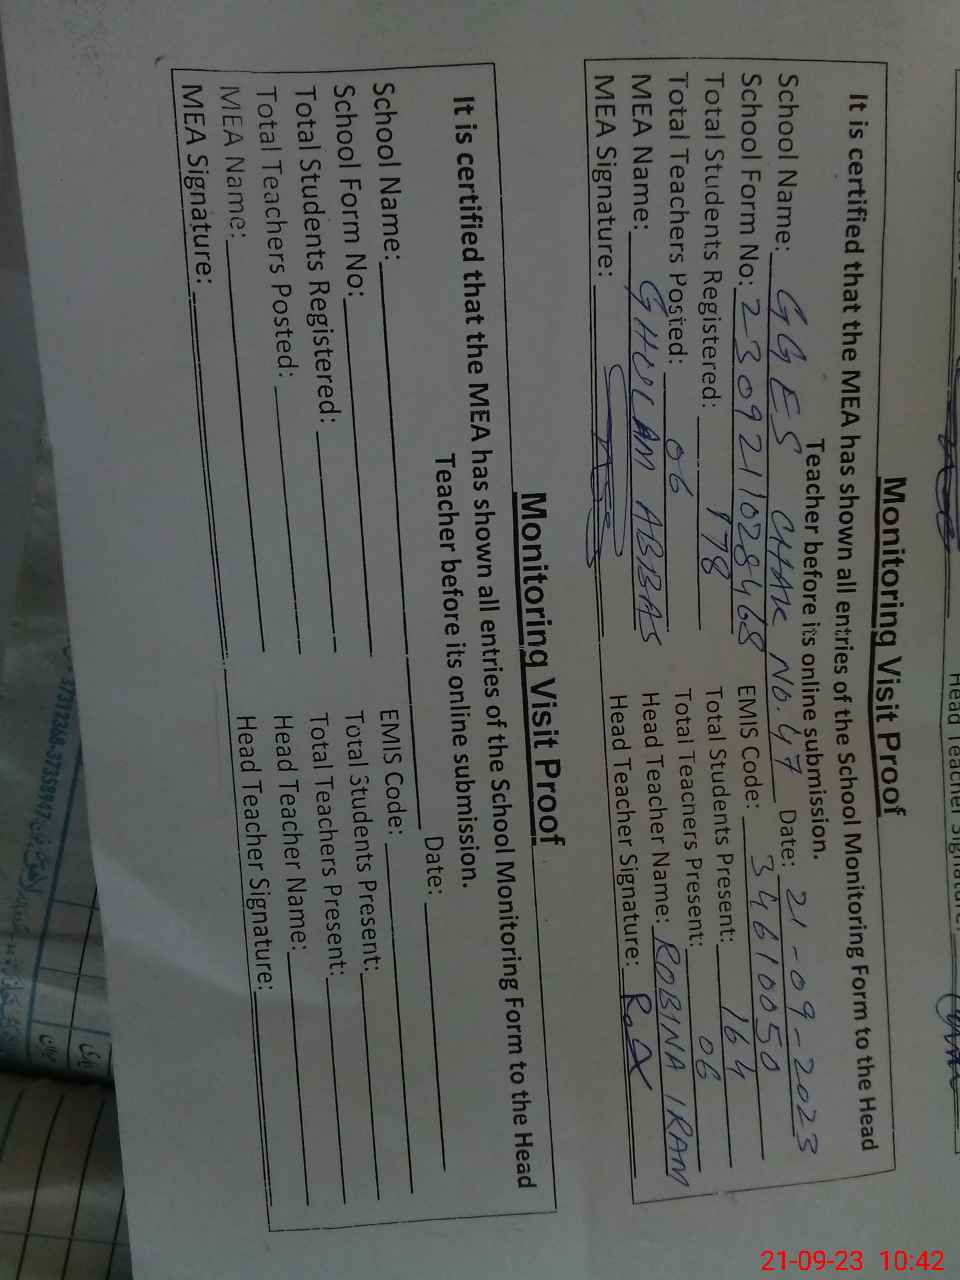 Head Teacher Signature:
Monitoring Visit Proof
It is certified that the MEA has shown all entries of the School Monitoring Form to the Head
Teacher before its online submission.
School Name: GGES CHAK No. 47 Date: 21-09-2023
School Form No: 2309211028468 EMIS Code: 34610050
Total Students Registered: 178 Total Students Present: 164
Total Teachers Posted: 06 Total Teachers Present: 06
MEA Name: GHULAM ABBAS Head Teacher Name: ROBINA IRAM
MEA Signature: Head Teacher Signature:
Monitoring Visit Proof
It is certified that the MEA has shown all entries of the School Monitoring Form to the Head
Teacher before its online submission.
School Name: Date:
School Form No: EMIS Code:
Total Students Registered: Total Students Present:
Total Teachers Posted: Total Teachers Present:
MEA Name: Head Teacher Name:
MEA Signature: Head Teacher Signature:
37312268-37358947
21-09-23 10:42